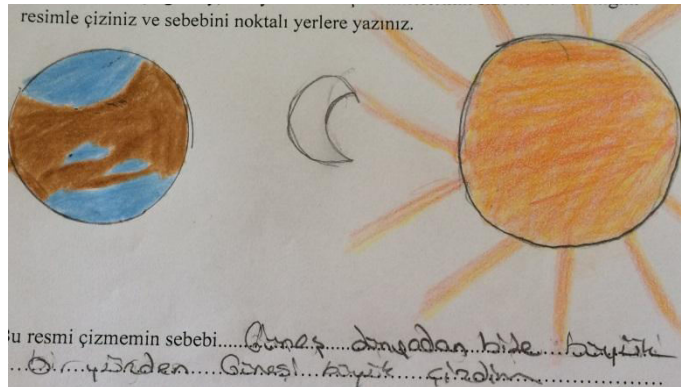 resimle çiziniz ve sebebini noktalı yerlere yazınız.
Bu resmi çizmemin sebebi.....Güneş....dünyadan bile....büyük
...O...yüzden....Güneşi...büyük....çizdim.....................